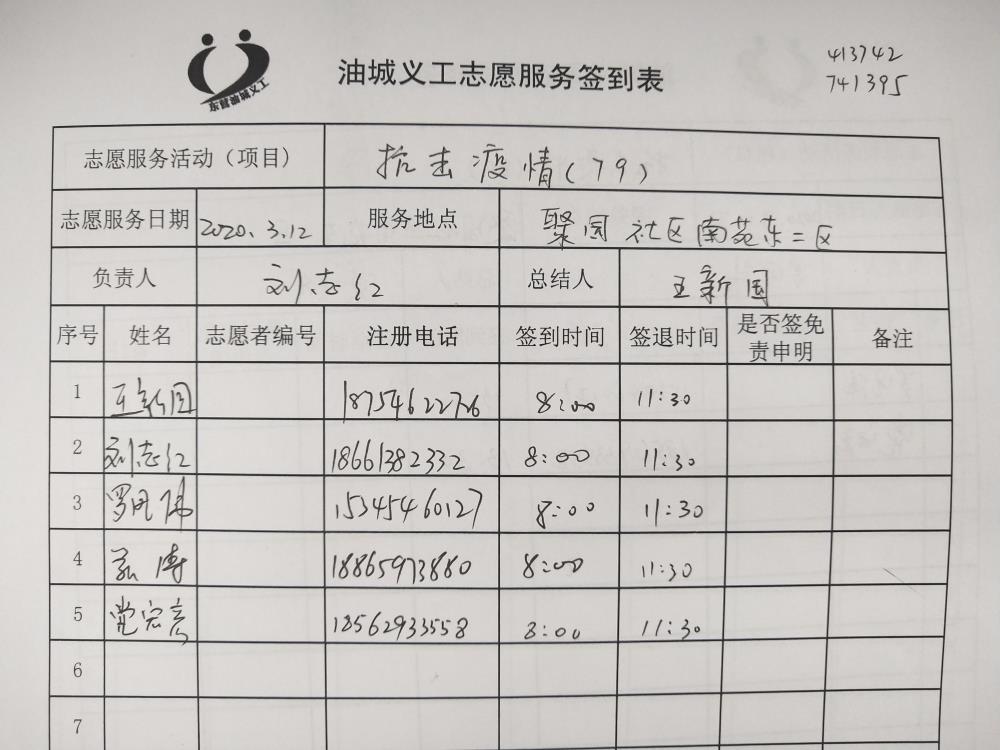 东营油城义工
油城义工志愿服务签到表
413742
741395
志愿服务活动（项目） 抗击疫情(79)
志愿服务日期 2020.3.12 服务地点 聚园社区南苑东二区
负责人 刘志红 总结人 王新国
序号 姓名 志愿者编号 注册电话 签到时间 签退时间 是否签免责申明 备注
1 王新国 18754622726 8:00 11:30
2 刘志红 18661382332 8:00 11:30
3 15345460127 8:00 11:30
4 18865973880 8:00 11:30
5 18562933558 8:00 11:30
6
7